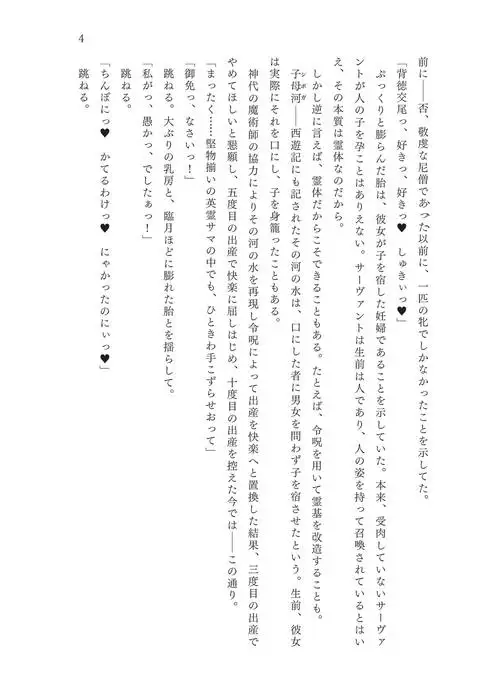 4
前に――否、敬虔な尼僧であった以前に、一匹の牝でしかなかったことを示してた。
「背徳交尾っ、好きっ、好きっ♥　しゅきぃっ♥」
　ぷっくりと膨らんだ胎は、彼女が子を宿した妊婦であることを示していた。本来、受肉していないサーヴァ
ントが人の子を孕むことはありえない。サーヴァントは生前は人であり、人の姿を持って召喚されているとはい
え、その本質は霊体なのだから。
　しかし逆に言えば、霊体だからこそできることもある。たとえば、令呪を用いて霊基を改造することも。
　子母河――西遊記にも記されたその河の水は、口にした者に男女を問わず子を宿させたという。生前、彼女
は実際にそれを口にし、子を身籠ったこともある。
　神代の魔術師の協力によりその河の水を再現し令呪によって出産を快楽へと置換した結果、三度目の出産で
やめてほしいと懇願し、五度目の出産で快楽に屈しはじめ、十度目の出産を控えた今では――この通り。
「まったく……堅物揃いの英霊サマの中でも、ひときわ手こずらせおって」
「御免っ、なさいっ！」
　跳ねる。大ぶりの乳房と、臨月ほどに膨れた胎とを揺らして。
「私がっ、愚かっ、でしたぁっ！」
　跳ねる。
「ちんぽにっ♥　かてるわけっ♥　にゃかったのにぃっ♥」
　跳ねる。